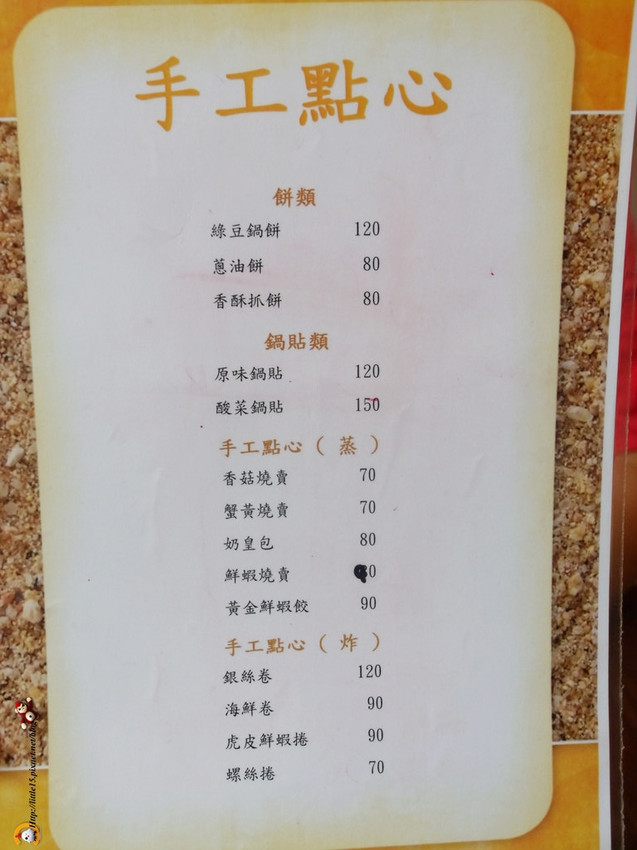 手工點心
餅類
綠豆鍋餅 120
蔥油餅 80
香酥抓餅 80
鍋貼類
原味鍋貼 120
酸菜鍋貼 150
手工點心（蒸）
香菇燒賣 70
蟹黃燒賣 70
奶皇包 80
鮮蝦燒賣 90
黃金鮮蝦餃 90
手工點心（炸）
銀絲卷 120
海鮮卷 90
虎皮鮮蝦捲 90
螺絲捲 70